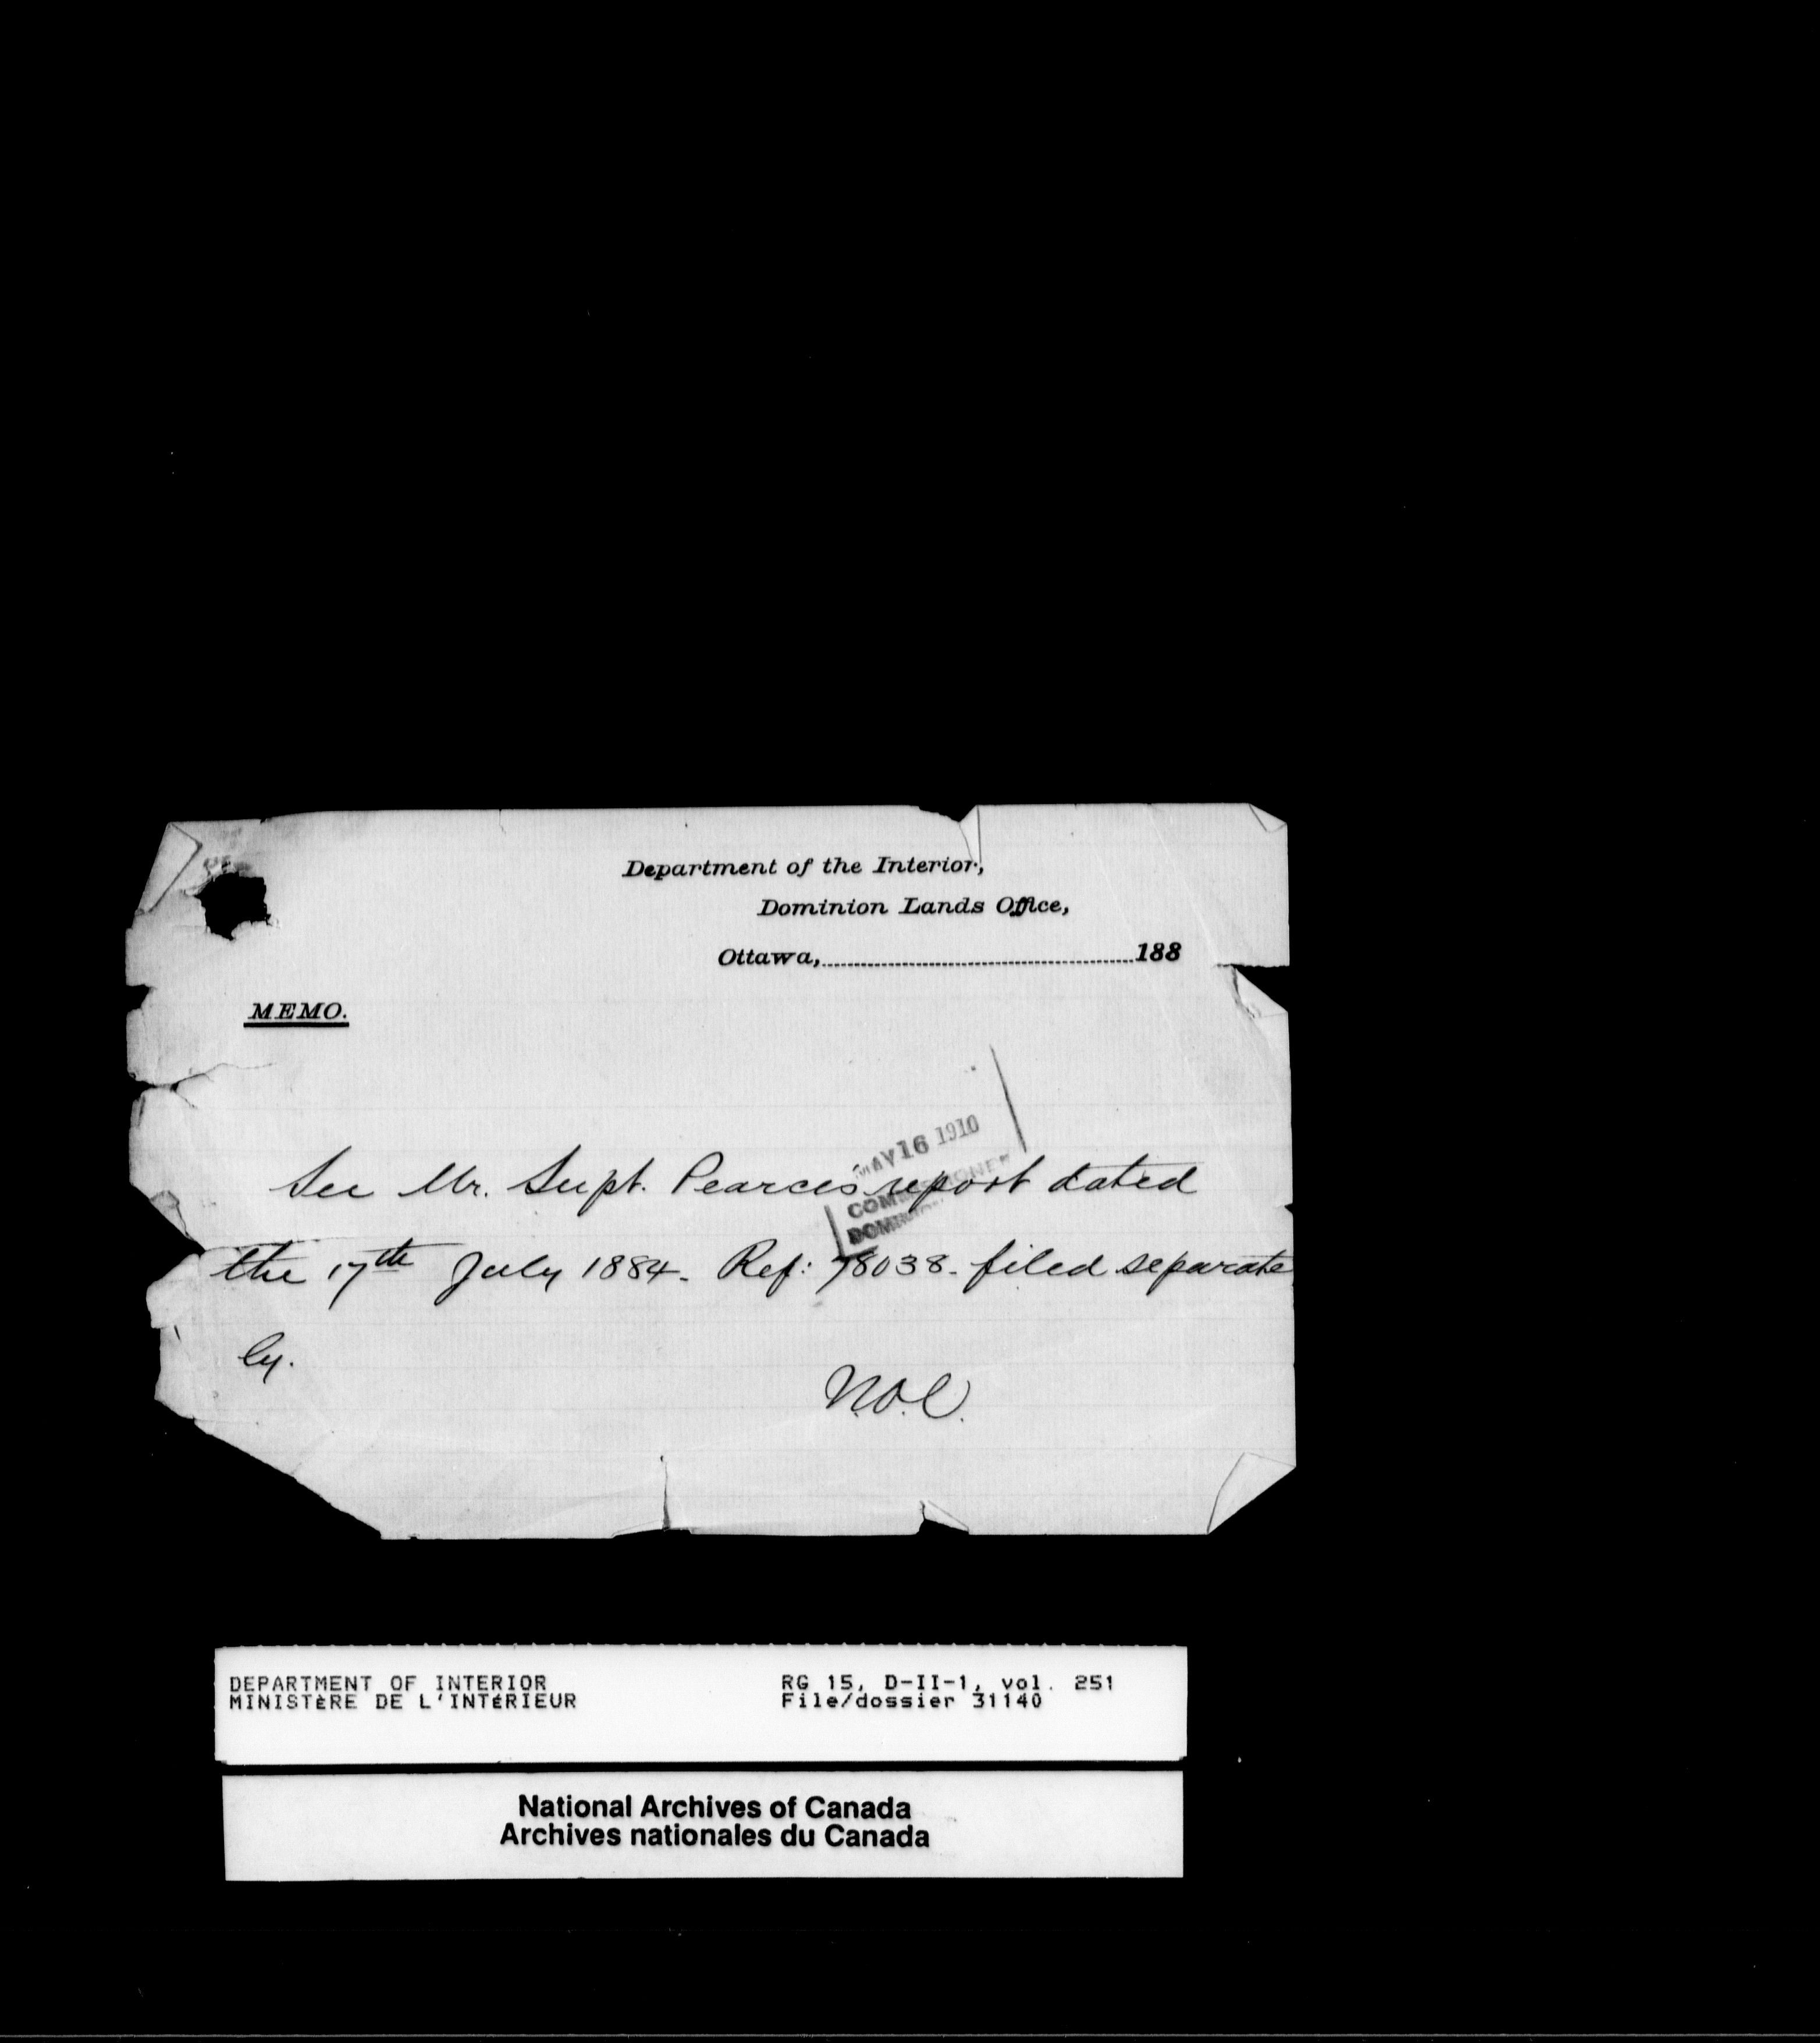 Department of the Interior,
Dominion Lands Office,
Ottawa,..............................188
MEMO.
MAY 16 1910
See Mr. Supt. Pearce's report dated
the 17th July 1884. Ref: 78038. filed separate
ly.
N.O.C.
DEPARTMENT OF INTERIOR
MINISTÈRE DE L'INTÉRIEUR
RG 15, D-II-1, vol. 251
File/dossier 31140
National Archives of Canada
Archives nationales du Canada